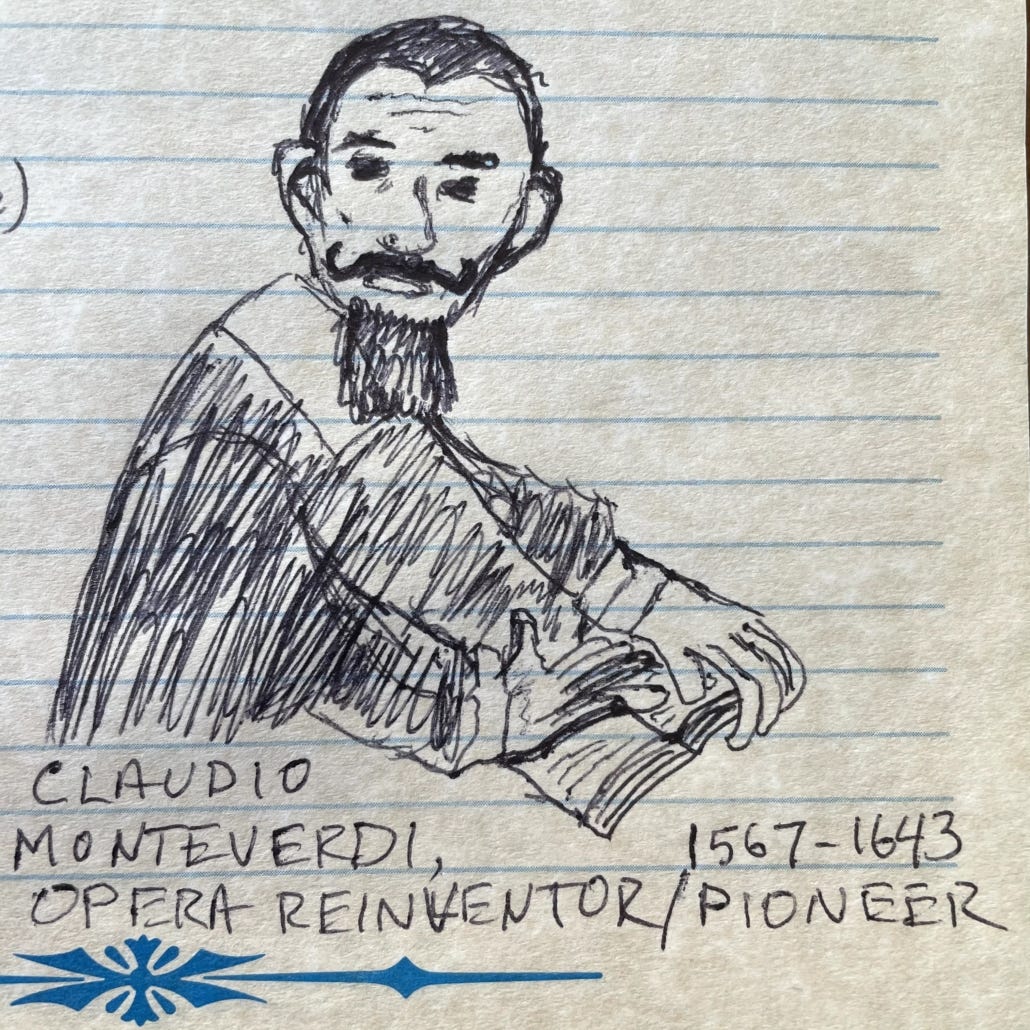 CLAUDIO
MONTEVERDI, 1567-1643
OPERA REINVENTOR/PIONEER